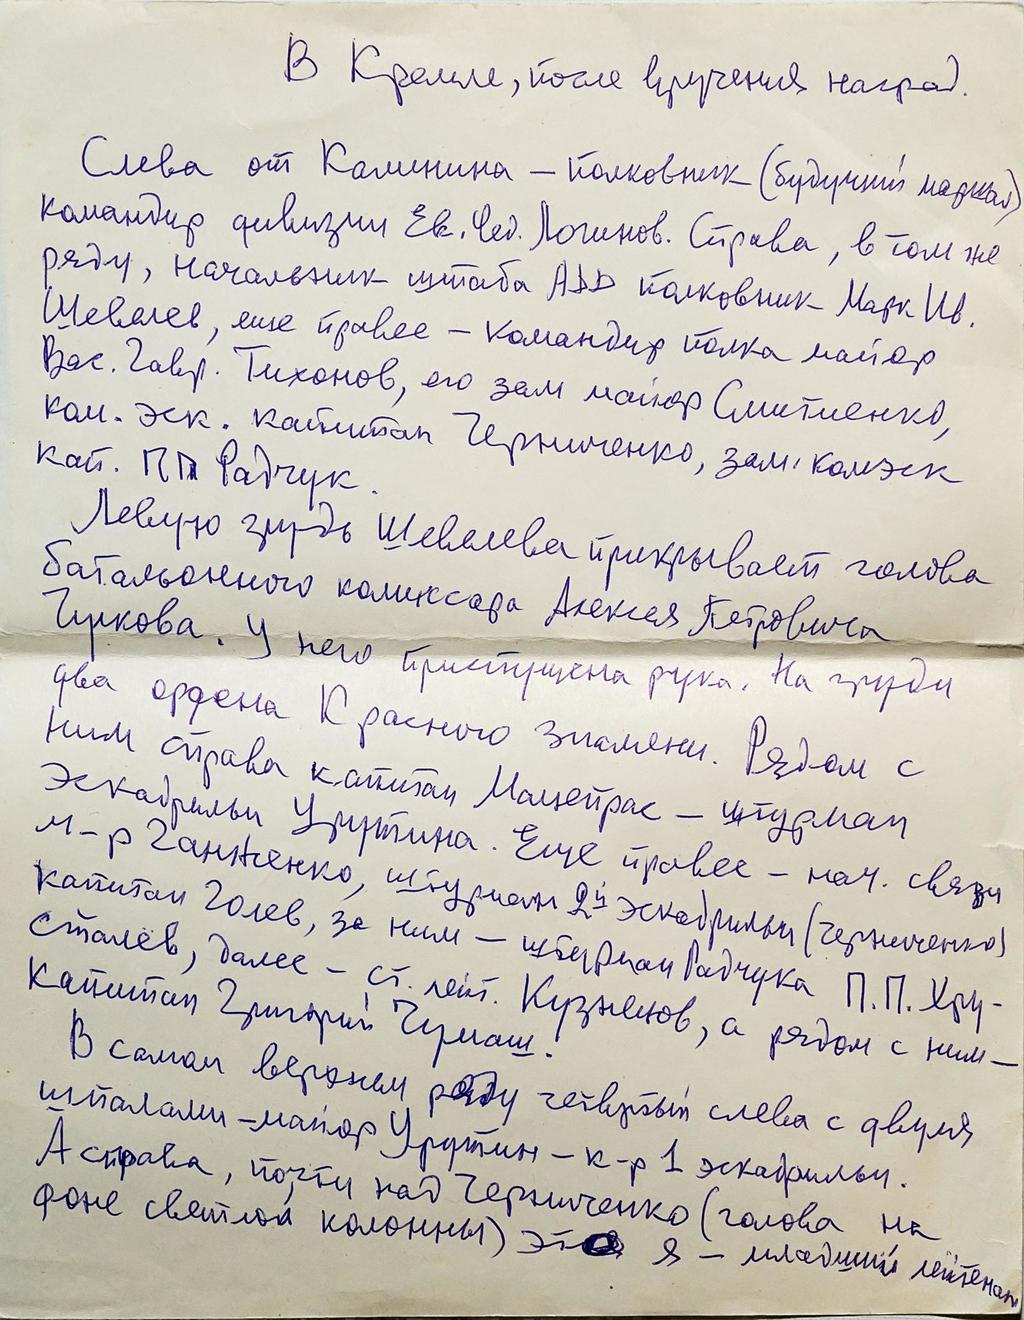 В Кремле, после вручения наград.
Слева от Калинина – полковник (будущий маршал)
командир дивизии Ев. Фед. Логинов. Справа, в том же
ряду, начальник штаба АДД полковник Марк Ив.
Шевелев, еще правее – командир полка майор
Вас. Гавр. Тихонов, его зам майор Смитиенко,
ком. эск. капитан Черниченко, зам. комэск
кап. П П Радчук.
Левую грудь Шевелева прикрывает голова
батальонного комиссара Алексея Петровича
Чулкова. У него приспущена рука. На груди
два ордена Красного знамени. Рядом с
ним справа капитан Мацепрас – штурман
эскадрильи Урутина. Еще правее – нач. связи
м-р Ганженко, штурман 2й эскадрильи (Черниченко)
капитан Голев, за ним – штурман Радчука П.П. Хру-
сталев, далее – ст. лейт. Кузнецов, а рядом с ним –
капитан Григорий Чумаш.
В самом верхнем ряду четвертый слева с двумя
шпалами – майор Урутин – к-р 1 эскадрильи.
А справа, почти над Черниченко (голова на
фоне светлой колонны) это я – младший лейтенант